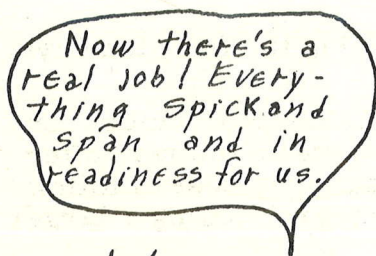 Now there's a
real job! Every-
thing spick and
span and in
readiness for us.